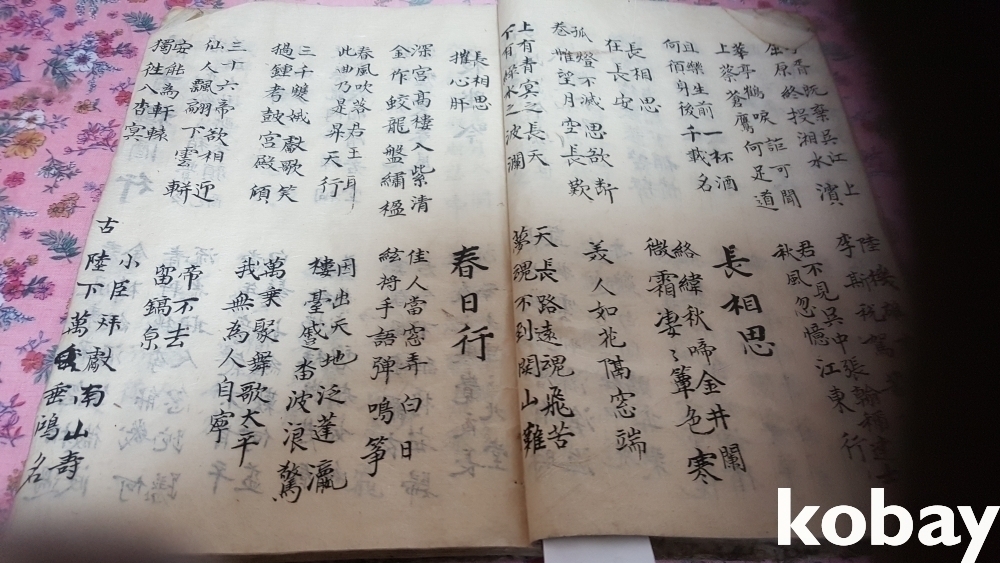 胥既棄吳江上
屈原終投湘水濱
陸機
李斯稅駕
華亭鶴唳詎可聞
上蔡蒼鷹何足道
君不見吳中張翰稱達士
秋風忽憶江東行
且樂生前一杯酒
何須身後千載名
長相思
長相思
在長安
絡緯秋啼金井闌
微霜凄〻簟色寒
孤燈不滅思欲断
卷帷望月空長歎
美人如花隔窓端
上有青冥之長天
下有淥水之波瀾
天長路遠魂飛苦
夢魂不到関山難
長相思
摧心肝
春日行
深宮高樓入紫清
金作蛟龍盤繡楹
佳人當窓弄白日
絃將手語彈鳴箏
春風吹落君王耳
此曲乃是昇天行
因出天地泛蓬瀛
樓臺蹙沓波浪驚
三千雙娥獻歌笑
撾鍾考鼓宮殿傾
萬乘聚舞歌太平
我無為人自寧
三十六帝欲相迎
仙人飄翩下雲軿
帝不去
留鎬京
安能為軒轅
獨往入杳冥
小臣拜獻南山壽
陛下萬古垂鴻名
古
kobay